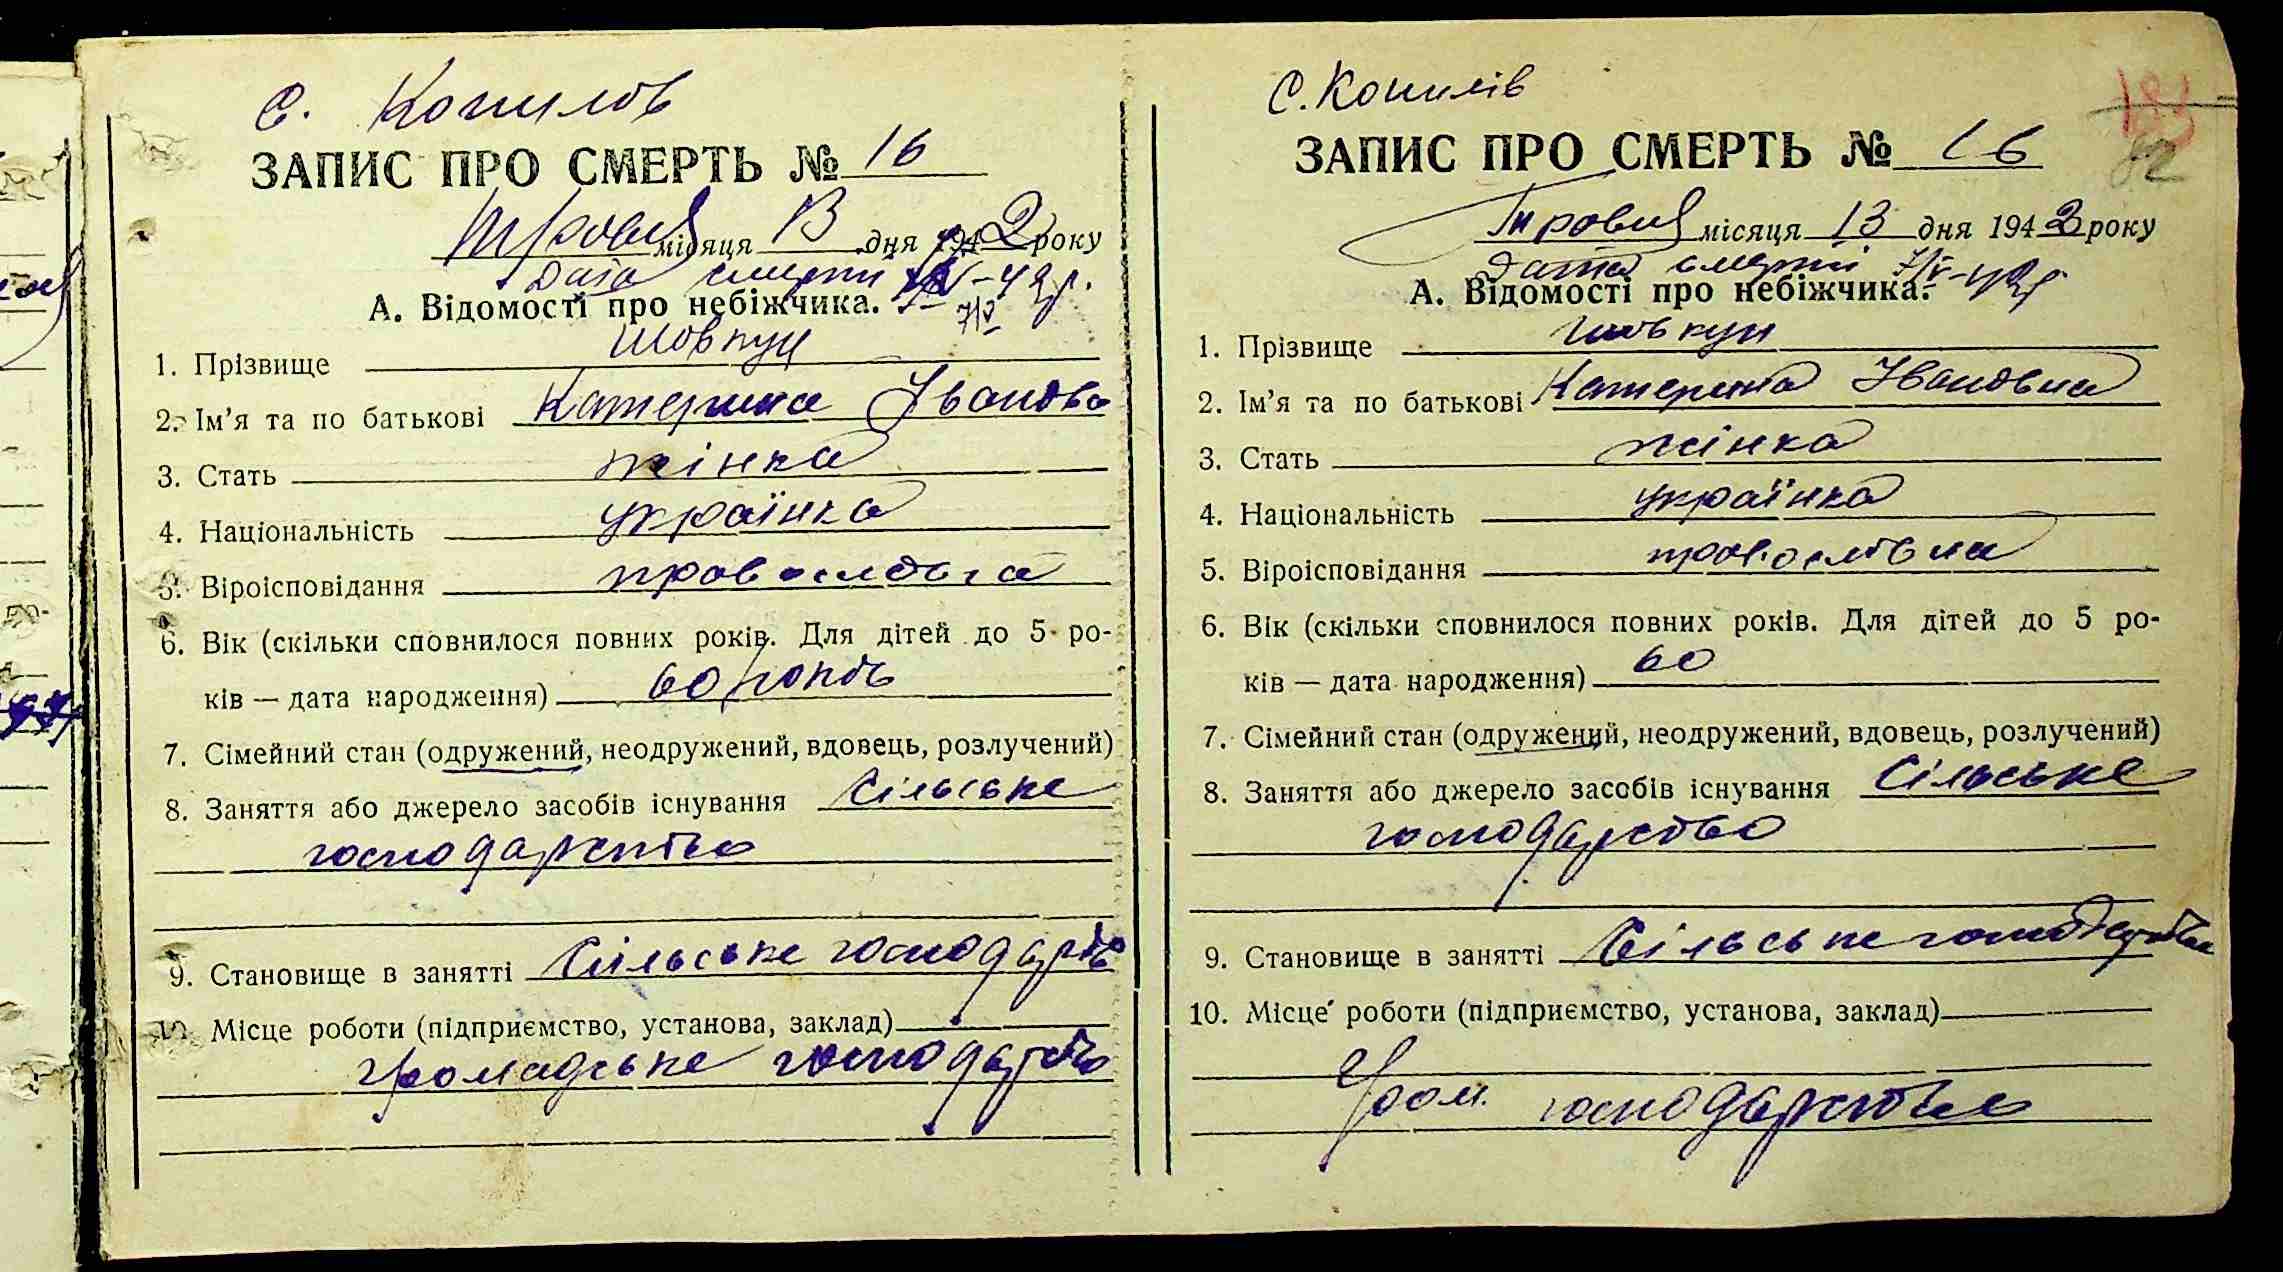 с. Копилов
ЗАПИС ПРО СМЕРТЬ № 16
Травня місяця 13 дня 1942 року
Дата смерти V-42р.
7/V
А. Відомості про небіжчика.
1. Прізвище Шовкун
2. Ім’я та по батькові Катерина Івановна
3. Стать жінка
4. Національність українка
5. Віроісповідання православна
6. Вік (скільки сповнилося повних років. Для дітей до 5 ро-
ків — дата народження) 60 років
7. Сімейний стан (одружений, неодружений, вдовець, розлучений)
8. Заняття або джерело засобів існування сільське
господарство
9. Становище в занятті сільське господарств
10. Місце роботи (підприємство, установа, заклад)
громадське господарство
с. Копилів
ЗАПИС ПРО СМЕРТЬ № 16
Травня місяця 13 дня 1942 року
Дата смерті 7/V-42р
А. Відомості про небіжчика.
1. Прізвище Шовкун
2. Ім’я та по батькові Катерина Івановна
3. Стать жінка
4. Національність українка
5. Віроісповідання православна
6. Вік (скільки сповнилося повних років. Для дітей до 5 ро-
ків — дата народження) 60
7. Сімейний стан (одружений, неодружений, вдовець, розлучений)
8. Заняття або джерело засобів існування сільське
господарство
9. Становище в занятті сільське господарство
10. Місце роботи (підприємство, установа, заклад)
Гром. господарство
82